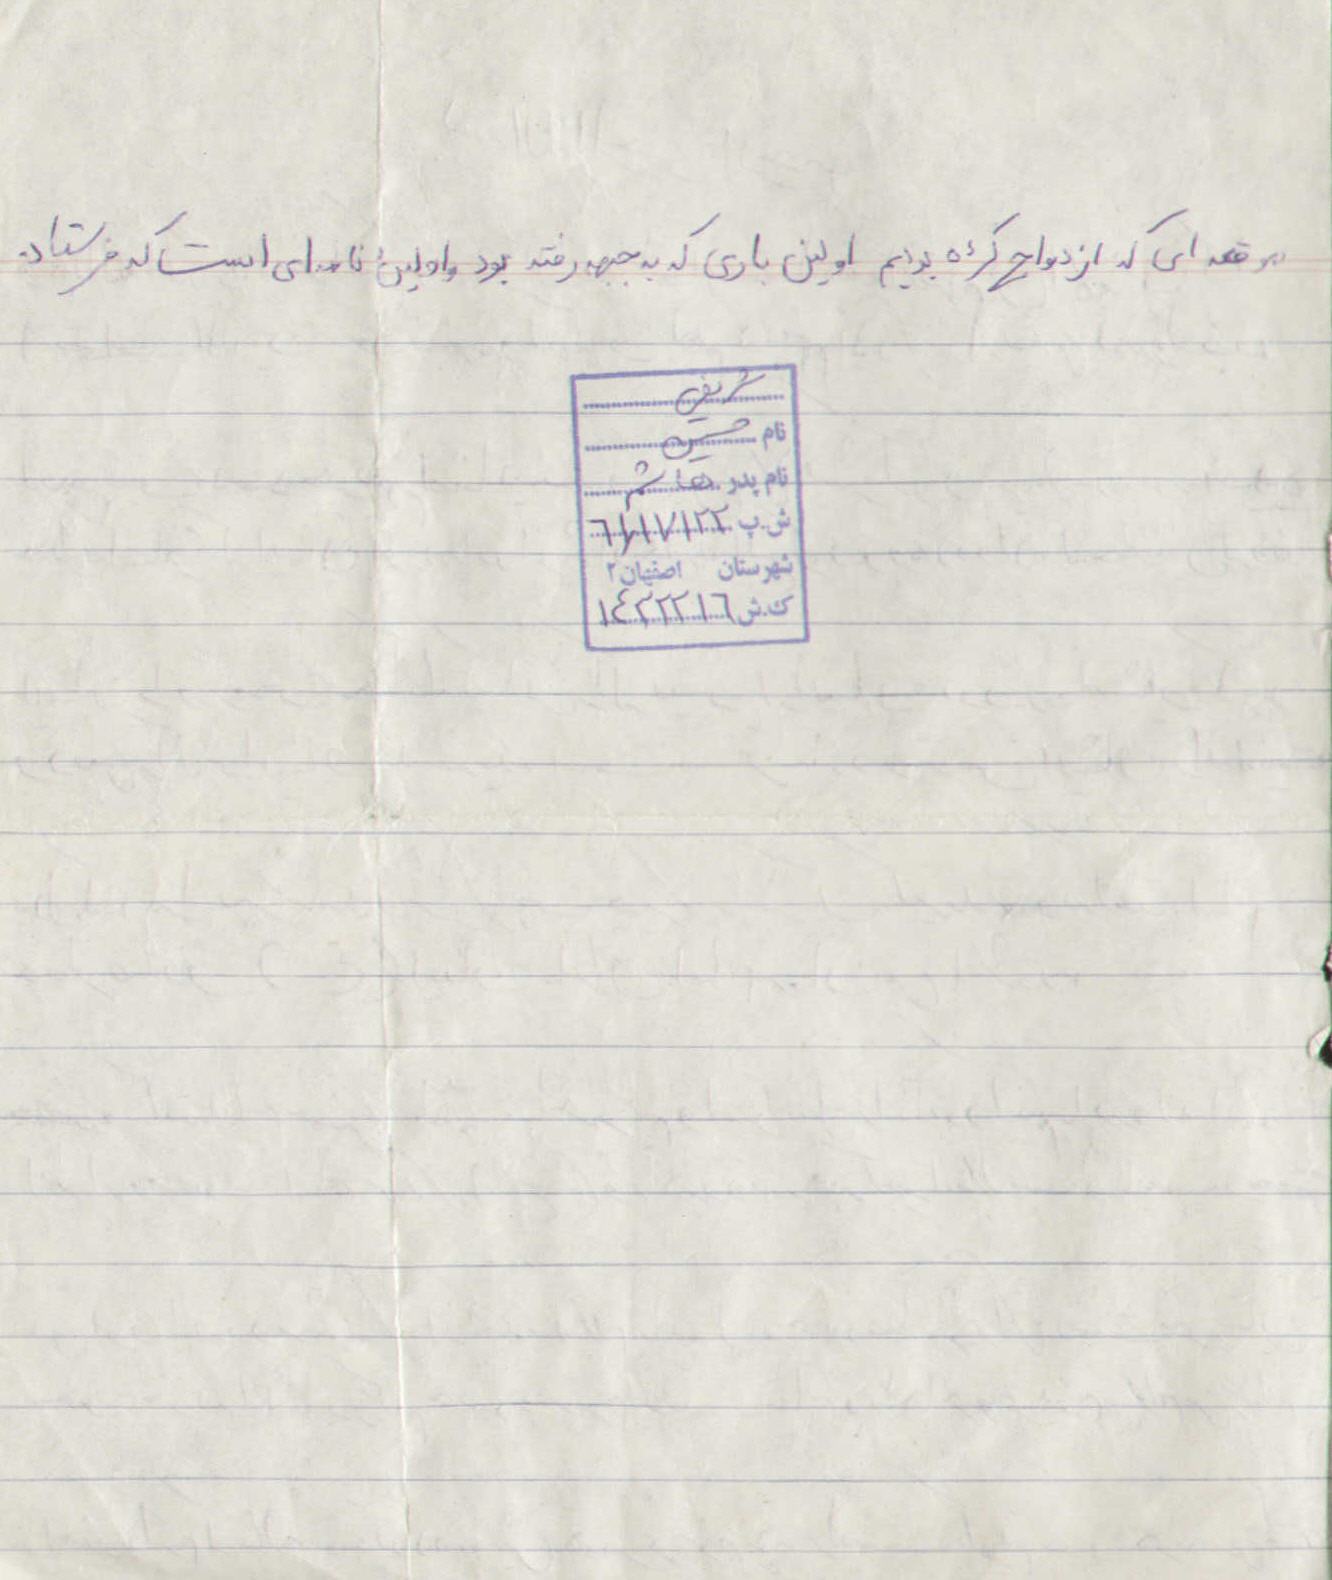 موقعه ای که ازدواج کرده بودیم اولین باری که به جبهه رفته بود و اولین نامه ای است که فرستاد.
شریفی
نام حسین
نام پدر هاشم
ش.پ ٦١/١٧١٢٢
شهرستان اصفهان ٢
ک.ش ١٤٢٢٢١٦